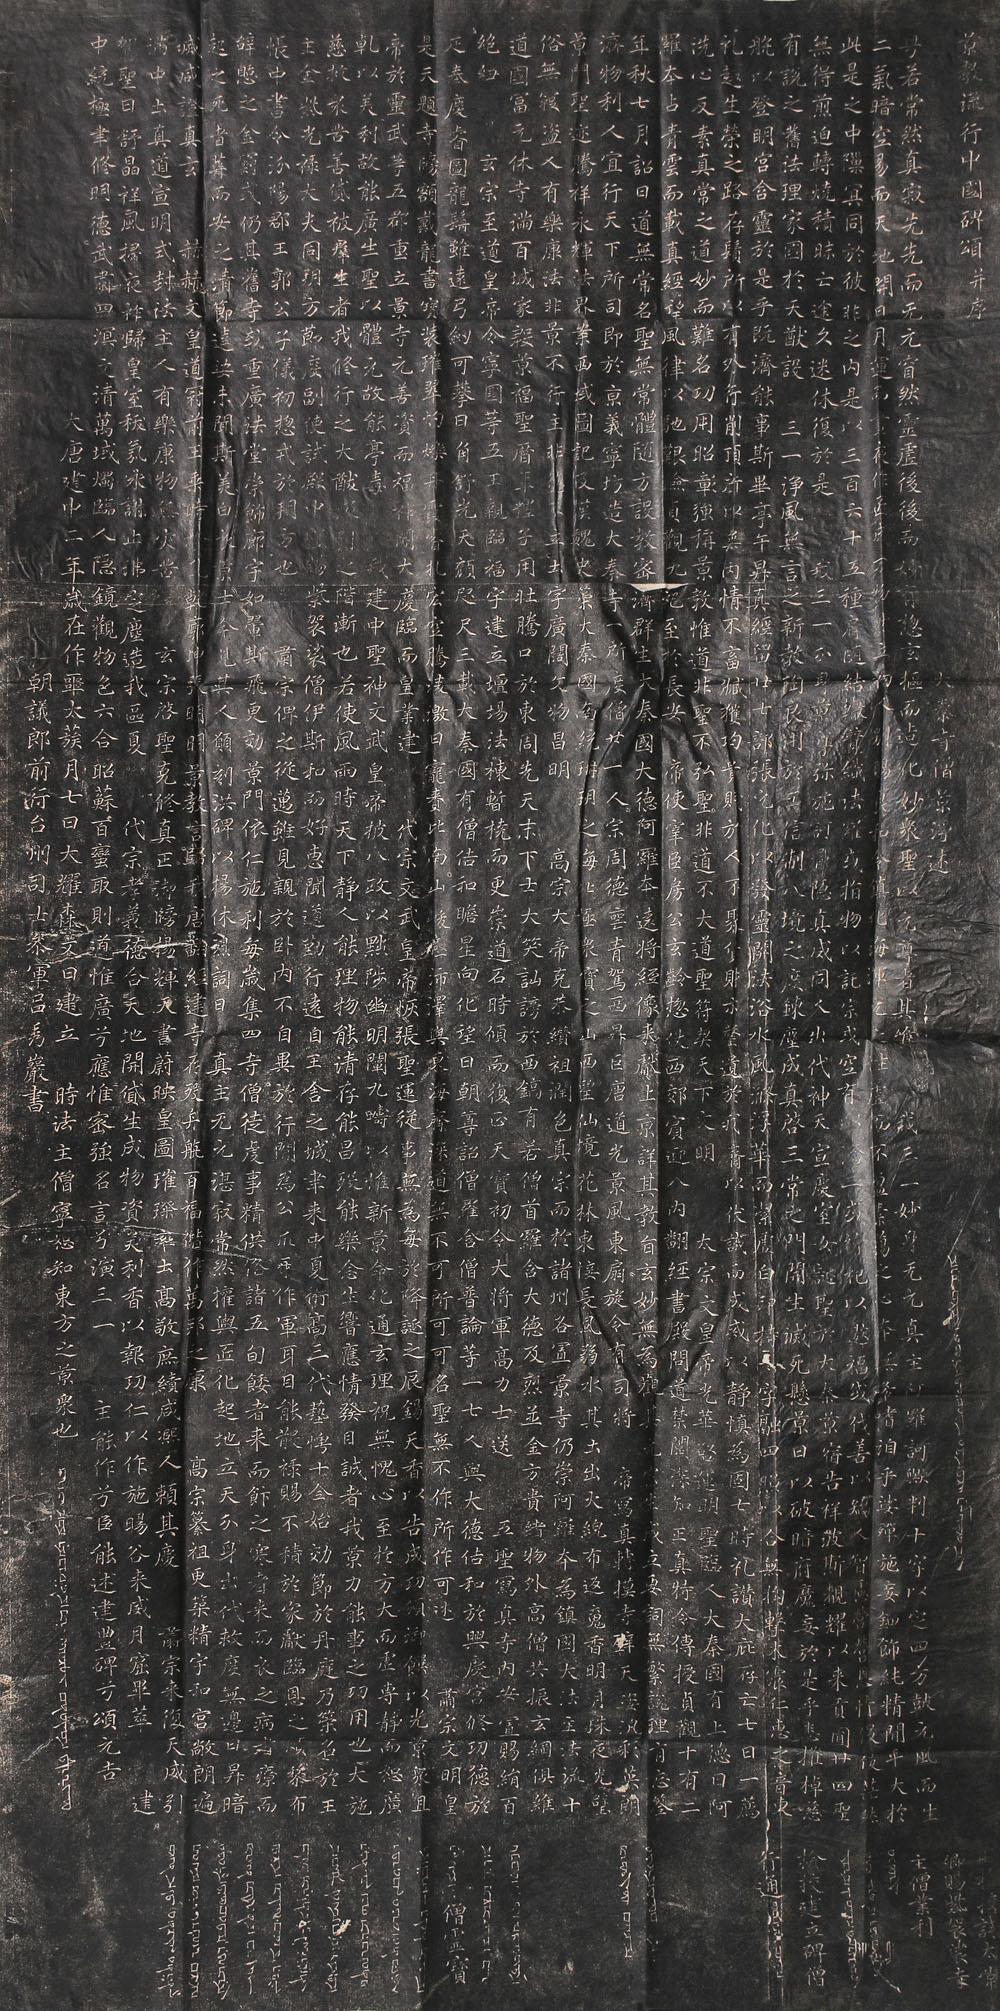 景教流行中國碑頌并序
大秦寺僧景淨述
粵若常然真寂先先而无元窅然靈虛後後而妙有惣玄樞而造化妙衆聖以元尊者其唯我三一妙身无元真主阿羅訶歟判十字以定四方鼓元風而生
二氣暗空易而天地開日月運而晝夜作匠成万物然立初人別賜良和令鎮化海渾元之性虛而不盈素蕩之心本無希嗜洎乎娑殫施妄鈿飾純精閒平大於
此是之中隟冥同於彼非之內是以三百六十五種肩隨結轍競織法羅或指物以託宗或空有以淪二或禱祀以邀福或伐善以矯人智慮營營恩情役役茫然
無得煎迫轉燒積昧亡途久迷休復於是我三一分身景尊弥施訶戢隱真威同人出代神天宣慶室女誕聖於大秦景宿告祥波斯覩耀以來貢圓廿四聖
有說之舊法理家國於大猷設三一淨風無言之新教陶良用於正信制八境之度鍊塵成真啓三常之門開生滅死懸景日以破暗府魔妄於是乎悉摧棹慈
航以登明宮含靈於是乎既濟能事斯畢亭午昇真經留廿七部張元化以發靈關法浴水風滌浮華而潔虛白印持十字融四照以合無拘擊木震仁惠之音東
礼趣生榮之路存鬚所以有外行削頂所以無內情不畜臧獲均貴賤於人不聚貨財示罄遺於我齋以伏識而成戒以靜慎為固七時礼讚大庇存亡七日一薦
洗心反素真常之道妙而難名功用昭彰強稱景教惟道非聖不弘聖非道不大道聖符契天下文明 太宗文皇帝光華啓運明聖臨人大秦國有上德曰阿
羅本占青雲而載真經望風律以馳艱險貞觀九祀至於長安帝使宰臣房公玄齡惣仗西郊賓迎入內翻經書殿問道禁闈深知正真特令傳授貞觀十有二
年秋七月詔曰道無常名聖無常體隨方設教密濟群生大秦國大德阿羅本遠將經像來獻上京詳其教旨玄妙無為觀其元宗生成立要詞無繁說理有忘筌
濟物利人宜行天下所司即於京義寧坊造大秦寺一所度僧廿一人宗周德喪青駕西昇巨唐道光景風東扇旋令有司將 帝寫真轉摸寺壁天姿汎彩英朗
景門聖迹騰祥永輝法界案西域圖記及漢魏史策大秦國南統珊瑚之海北極衆寶之山西望仙境花林東接長風弱水其土出火綄布返魂香明月珠夜光璧
俗無寇盜人有樂康法非景不行主非德不立土宇廣闊文物昌明 高宗大帝克恭纘祖潤色真宗而於諸州各置景寺仍崇阿羅本為鎮國大法主法流十
道國富元休寺滿百城家殷景福聖曆年釋子用壯騰口於東周先天末下士大笑訕謗於西鎬有若僧首羅含大德及烈並金方貴緒物外高僧共振玄綱俱維
絕紐 玄宗至道皇帝令寧國等五王親臨福宇建立壇場法棟暫橈而更崇道石時傾而復正天寶初令大將軍高力士送 五聖寫真寺內安置賜絹百
疋奉慶睿圖龍髯雖遠弓劍可攀日角舒光天顏咫尺三載大秦國有僧佶和瞻星向化望日朝尊詔僧羅含僧普論等一七人與大德佶和於興慶宮修功德於
是天題寺牓額戴龍書寶裝璀翠灼爍丹霞睿扎宏空騰凌激日寵賚比南山峻極沛澤與東海齊深道無不可所可可名聖無不作所作可述 肅宗文明皇
帝於靈武等五郡重立景寺元善資而福祚開大慶臨而皇業建 代宗文武皇帝恢張聖運從事無為每於降誕之辰錫天香以告成功頒御饌以光景衆且
乹以美利故能廣生聖以體元故能亭毒 我建中聖神文武皇帝披八政以黜陟幽明闡九疇以惟新景命化通玄理祝無愧心至於方大而虛專靜而恕廣
慈救衆苦善貸被群生者我修行之大猷汲引之階漸也若使風雨時天下靜人能理物能清存能昌歿能樂念生響應情發目誠者我景力能事之功用也大施
主金紫光祿大夫同朔方節度副使試殿中監賜紫袈裟僧伊斯和而好惠聞道勤行遠自王舍之城聿來中夏術高三代藝博十全始効節於丹庭乃策名於王
帳中書令汾陽郡王郭公子儀初惣戎於朔方也 肅宗俾之從邁雖見親於臥內不自異於行間為公爪牙作軍耳目能散祿賜不積於家獻臨恩之頗黎布
辭憩之金罽或仍其舊寺或重廣法堂崇飾廊宇如翬斯飛更効景門依仁施利每歲集四寺僧徒虔事精供備諸五旬餧者來而飰之寒者來而衣之病者療而
起之死者葬而安之清節達娑未聞斯美白衣景士今見其人願刻洪碑以揚休烈詞曰 真主无元湛寂常然權輿匠化起地立天分身出代救度無邊日昇暗
滅咸證真玄 赫赫文皇道冠前王乘時撥亂乹廓坤張明明景教言歸我唐翻經建寺存歿舟航百福偕作萬邦之康 高宗纂祖更築精宇和宮敞朗遍
滿中土真道宣明式封法主人有樂康物無災苦 玄宗啓聖克修真正御牓揚輝天書蔚映皇圖璀璨率土高敬庶績咸熈人賴其慶 肅宗來復天威引
駕聖日舒晶祥風掃夜祚歸皇室秡氛永謝止沸定塵造我區夏 代宗孝義德合天地開貸生成物資美利香以報功仁以作施暘谷來威月窟畢萃 建
中統極聿修明德武肅四溟文清萬域燭臨人隱鏡觀物色六合昭蘇百蠻取則道惟廣兮應惟密強名言兮演三一 主能作兮臣能述建豐碑兮頌元吉
大唐建中二年歲在作噩太蔟月七日大耀森文日建立 時法主僧寧恕知東方之景衆也
朝議郎前行台州司士參軍呂秀巖書
助檢校試太常
卿賜紫袈裟寺
主僧業利
檢校建立碑僧
行通
僧靈寶